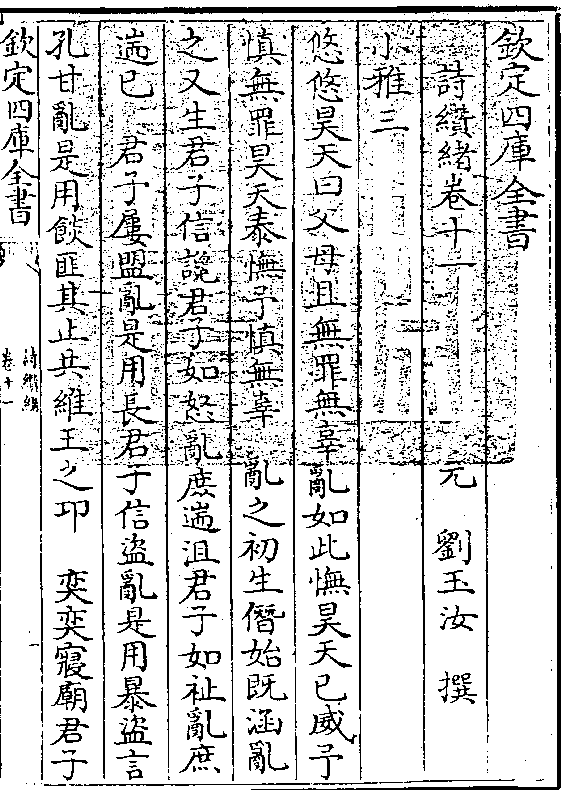 欽定四庫全書
詩纘緒卷十一　元　劉玉汝　撰
小雅三
悠悠昊天曰父母且無罪無辜亂如此憮昊天已威予
慎無罪昊天泰憮予慎無辜　亂之初生僭始既涵亂
之又生君子信讒君子如怒亂庶遄沮君子如祉亂庶
遄已　君子屢盟亂是用長君子信盜亂是用暴盜言
孔甘亂是用餤匪其止共維王之卭　奕奕寢廟君子
欽定四庫全書
詩纘緒
卷十一